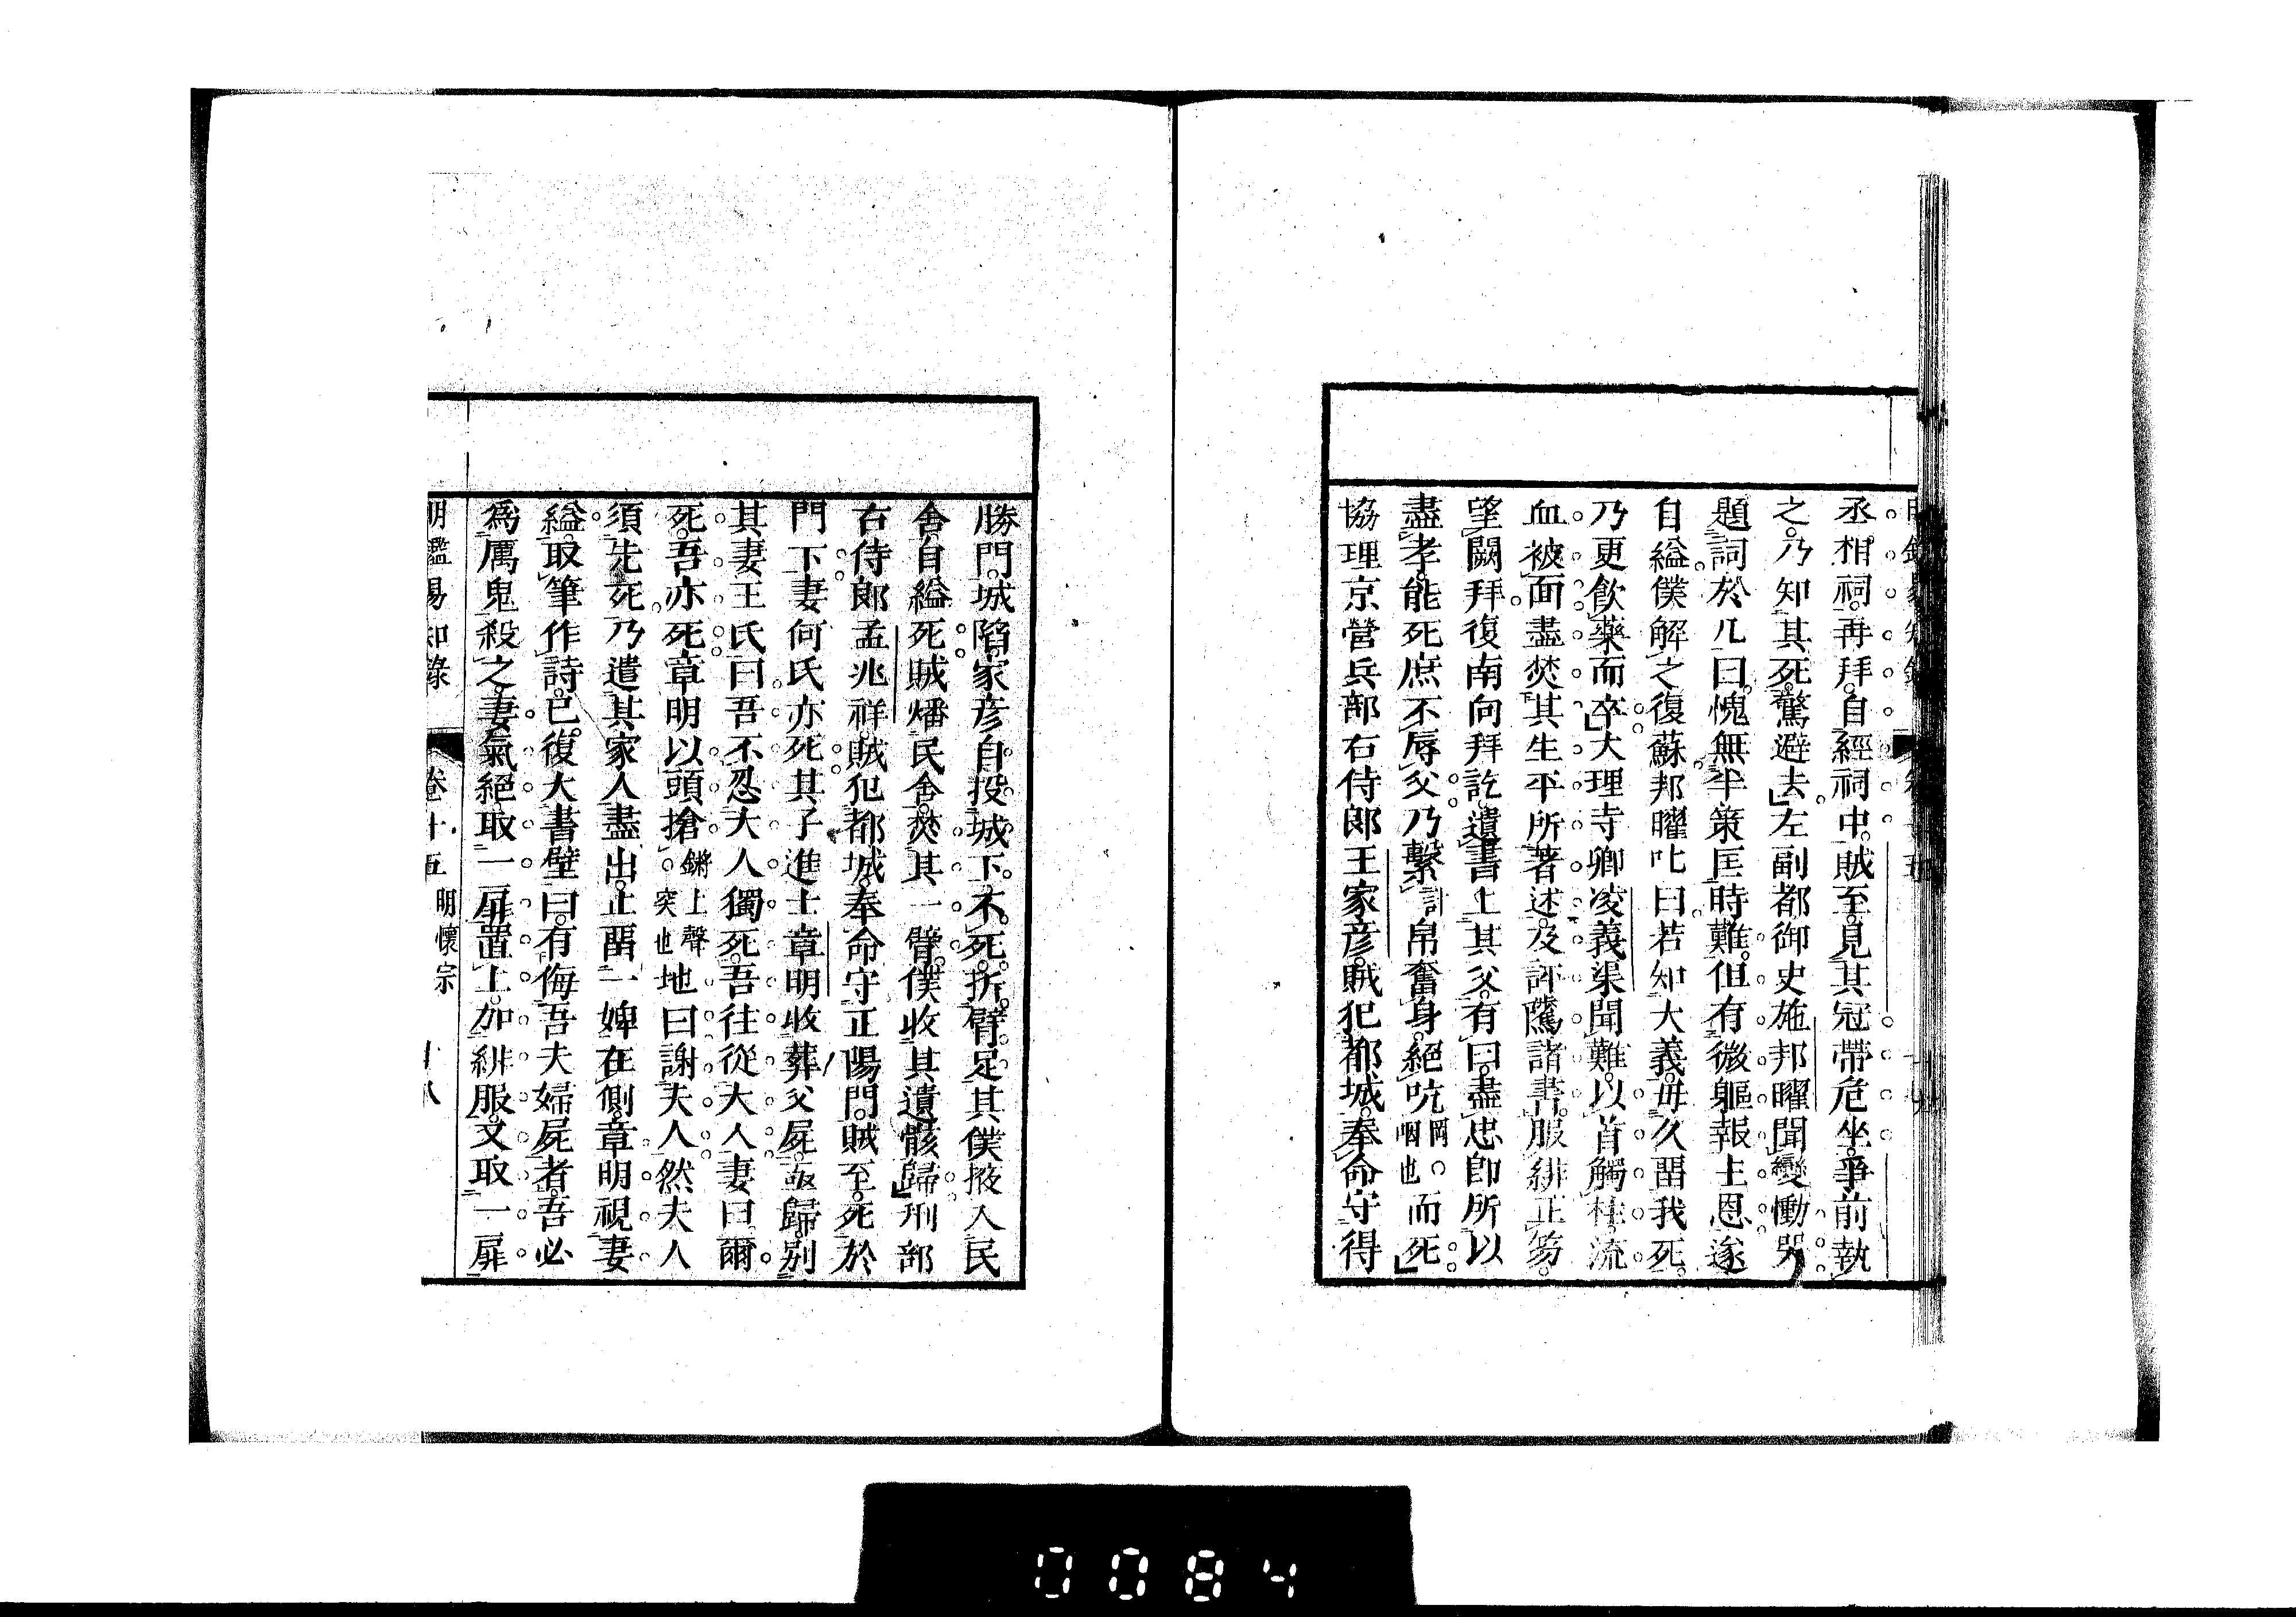 丞相祠。再拜。自經祠中。賊至。見其冠帶危坐。爭前執
之。乃知其死。驚避去。左副都御史施邦曜聞變慟哭
題詞於几曰。愧無半策匡時難。但有微軀報主恩。遂
自縊。僕解之復蘇。邦曜叱曰。若知大義。毋久畱我死。
乃更飲藥而卒。大理寺卿凌義渠聞難。以首觸柱。流
血被面。盡焚其生平所著述。及評隲諸書。服緋正笏。
望闕拜。復南向拜訖。遺書上其父。有曰。盡忠卽所以
盡孝。能死庶不辱父。乃繫計帛奮身。絕吭岡。咽也而死。
協理京營兵部右侍郎王家彥。賊犯都城。奉命守得
勝門。城陷。家彥自投城下。不死。折臂足。其僕掖入民
舍。自縊死。賊燔民舍。焚其一臂。僕收其遺骸歸。刑部
右侍郎孟兆祥。賊犯都城。奉命守正陽門。賊至。死於
門下。妻何氏亦死。其子進士章明收葬父屍。亟歸。别
其妻王氏曰。吾不忍大人獨死。吾往從大人。妻曰。爾
死。吾亦死。章明以頭搶鏘上聲。突也地曰。謝夫人。然夫人
須先死。乃遣其家人盡出。止畱一婢在側。章明視妻
縊。取筆作詩。已。復大書壁曰。有侮吾夫婦屍者。吾必
爲厲鬼殺之。妻氣絕。取一扉置上。加緋服。又取一扉
明鑑易知錄 卷十五 明懷宗 十八
0084